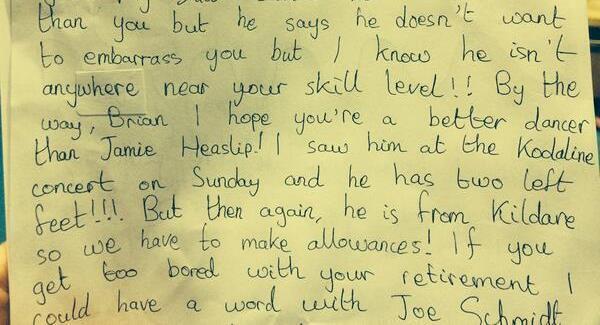 than you but he says he doesn't want
to embarrass you but I know he isn't
anywhere near your skill level!! By the
way, Brian I hope you're a better dancer
than Jamie Heaslip! I saw him at the Kodaline
concert on Sunday and he has two left
feet!!! But then again, he is from Kildare
so we have to make allowances! If you
get too bored with your retirement I
could have a word with Joe Schmidt